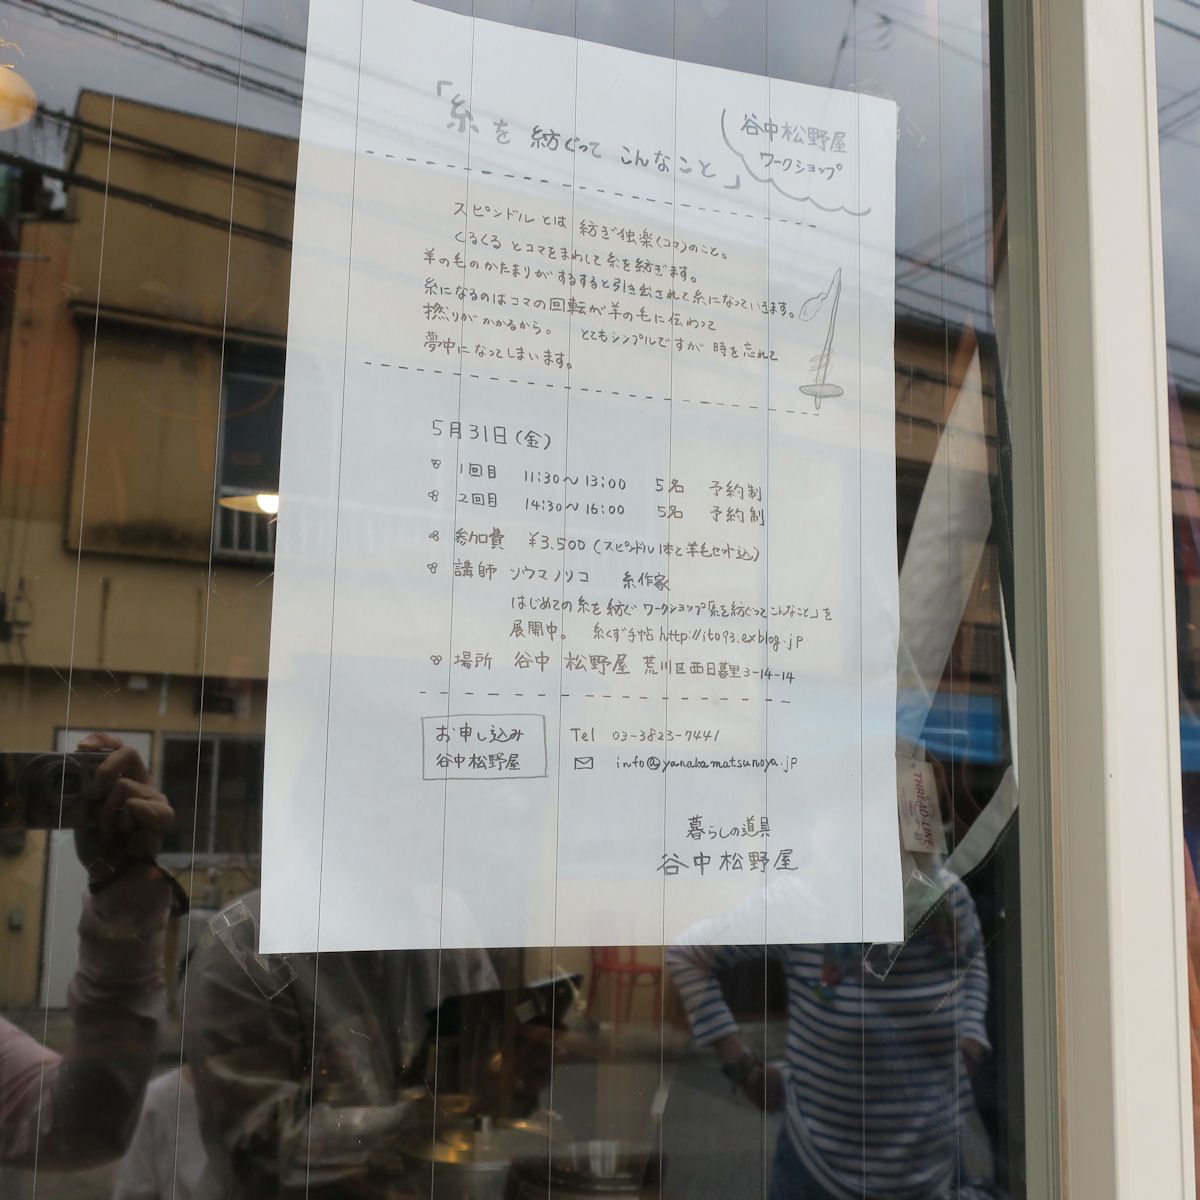 谷中松野屋
ワークショップ
「糸を紡ぐってこんなこと」
スピンドルとは紡ぎ独楽(コマ)のこと。
くるくるとコマをまわして糸を紡ぎます。
羊の毛のかたまりがするすると引き出されて糸になっていきます。
糸になるのはコマの回転が羊の毛に伝わって
撚りがかかるから。 とてもシンプルですが時を忘れて
夢中になってしまいます。
5月31日(金)
1回目 11:30〜13:00 5名 予約制
2回目 14:30〜16:00 5名 予約制
参加費 ¥3.500(スピンドル1本と羊毛セット込)
講師 ソウマノリコ 糸作家
はじめての糸を紡ぐワークショップ「糸を紡ぐってこんなこと」を
展開中。 糸くず手帖 http://ito93.exblog.jp
場所 谷中 松野屋 荒川区西日暮里3-14-14
お申し込み
谷中松野屋
Tel 03-3823-7441
info@yanakamatsunoya.jp
暮らしの道具
谷中松野屋
THREAD-LINE